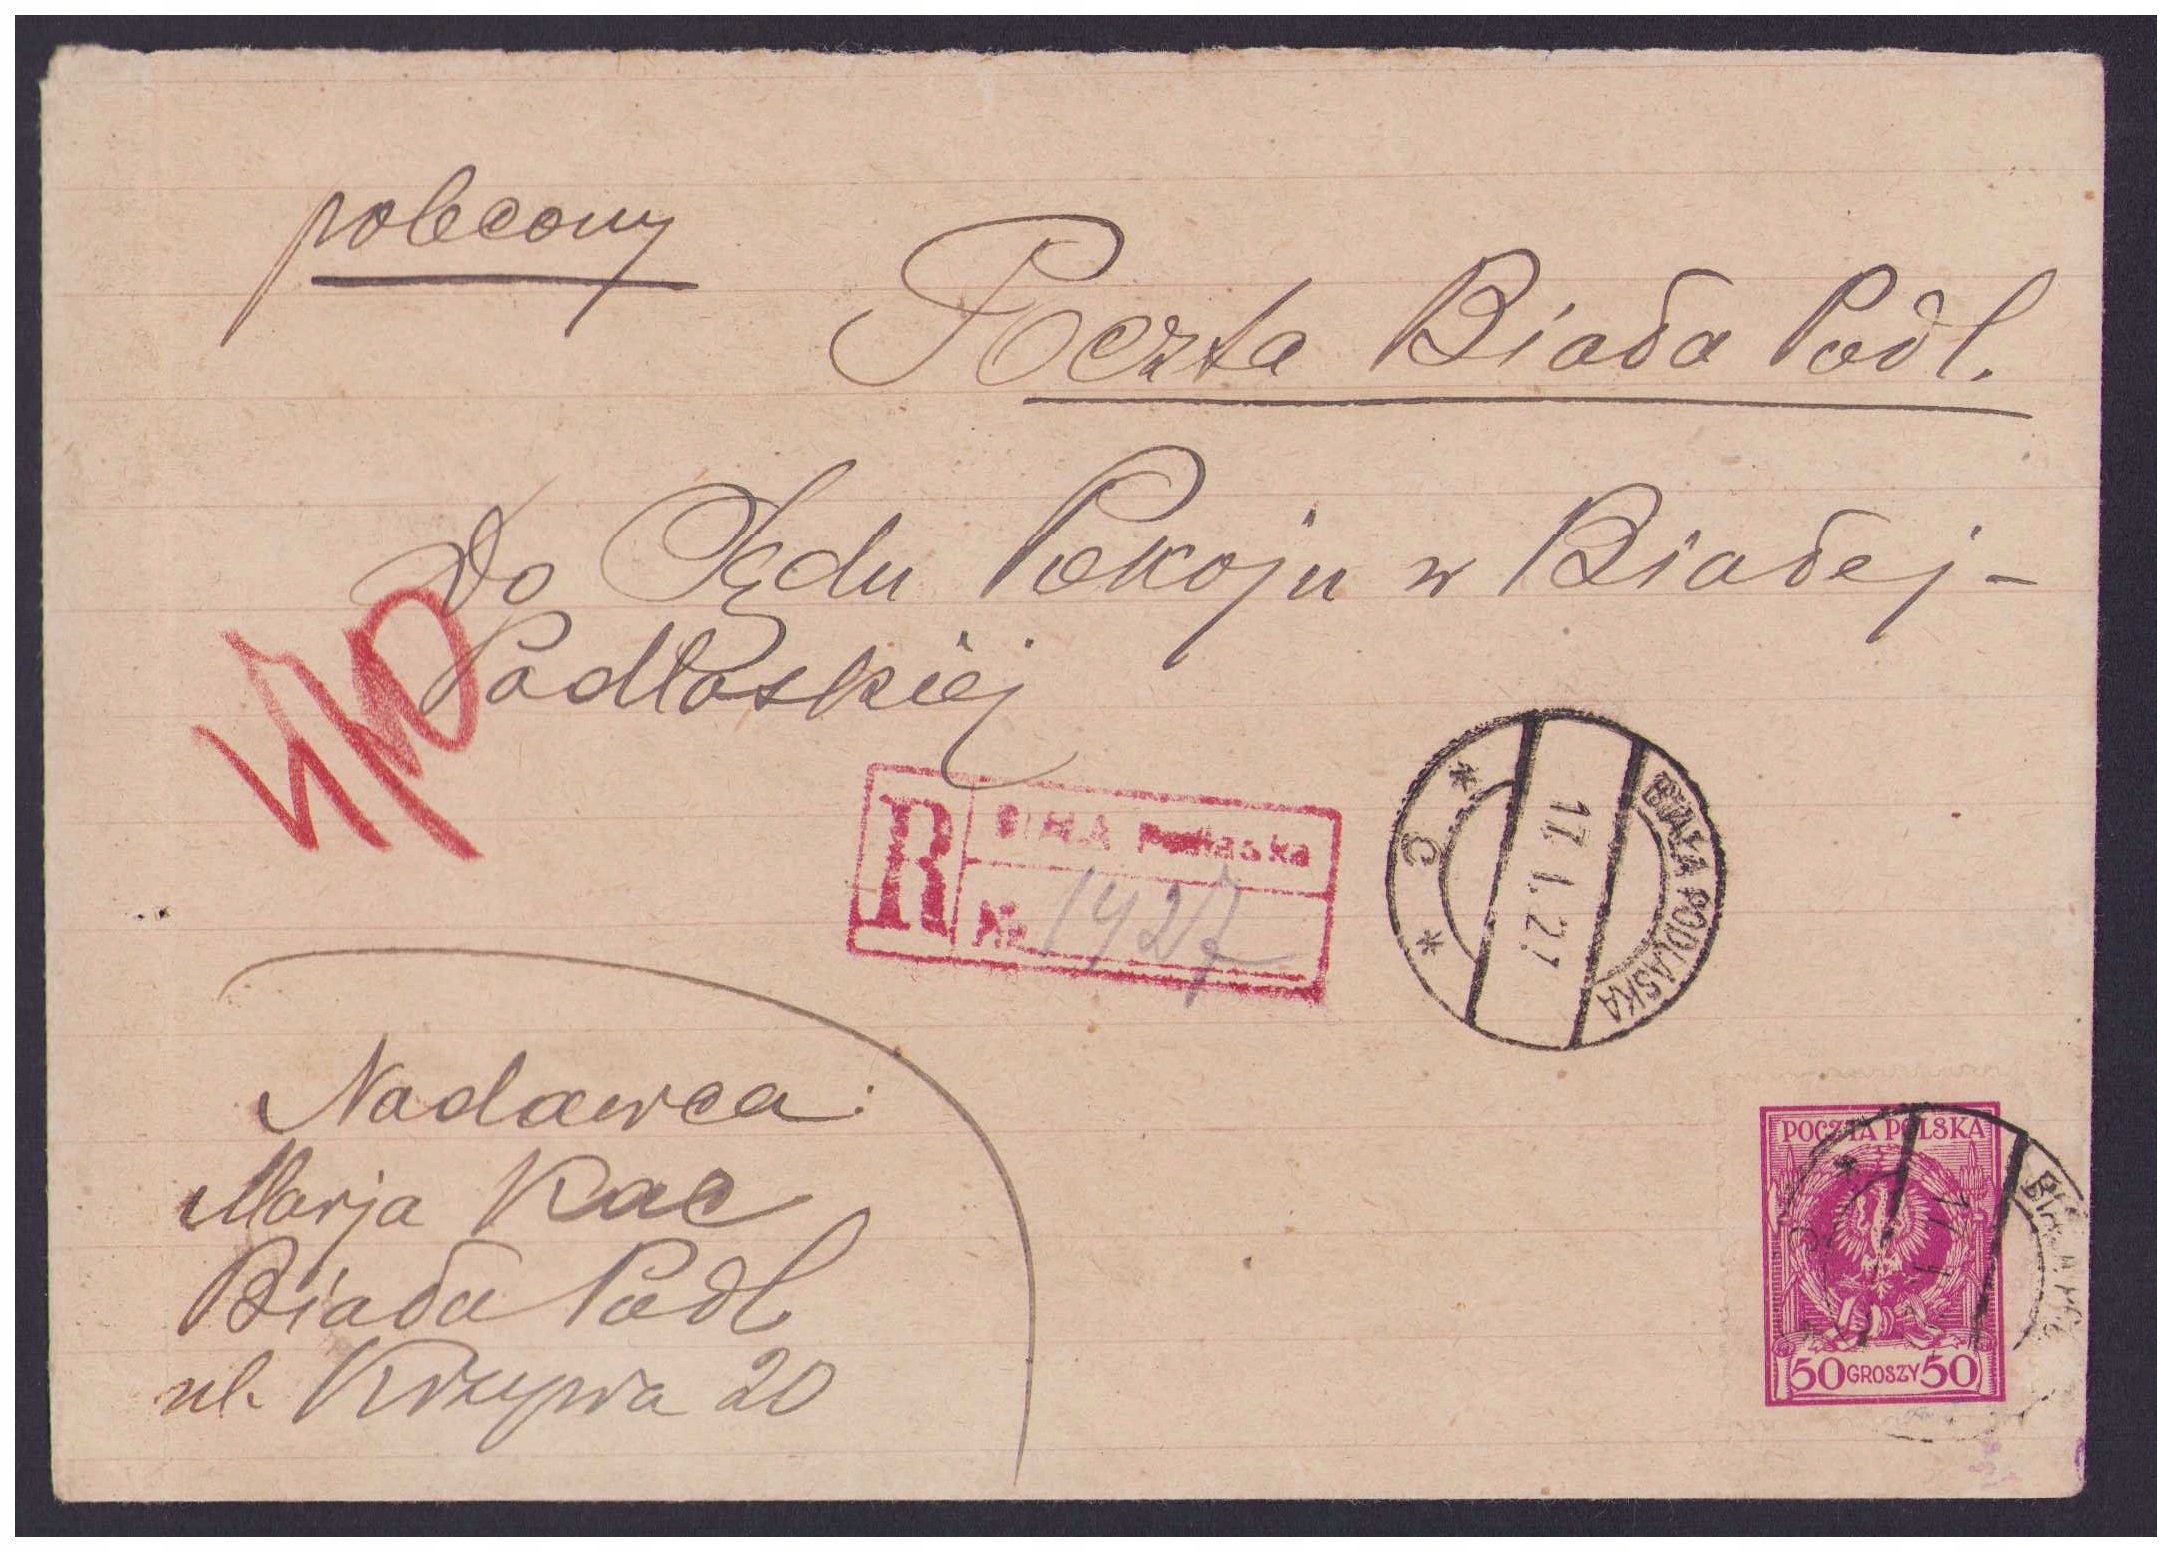 polecony
Poczta Biała Podl.
Do Sądu Pokoju w Białej-
Podlaskiej
R BIAŁA Podlaska
№ 1927
* C *
BIAŁA PODLASKA
17.1.27
Nadawca:
Marja Kac
Biała Podl.
ul. Krzywa 20
POCZTA POLSKA
50 GROSZY 50